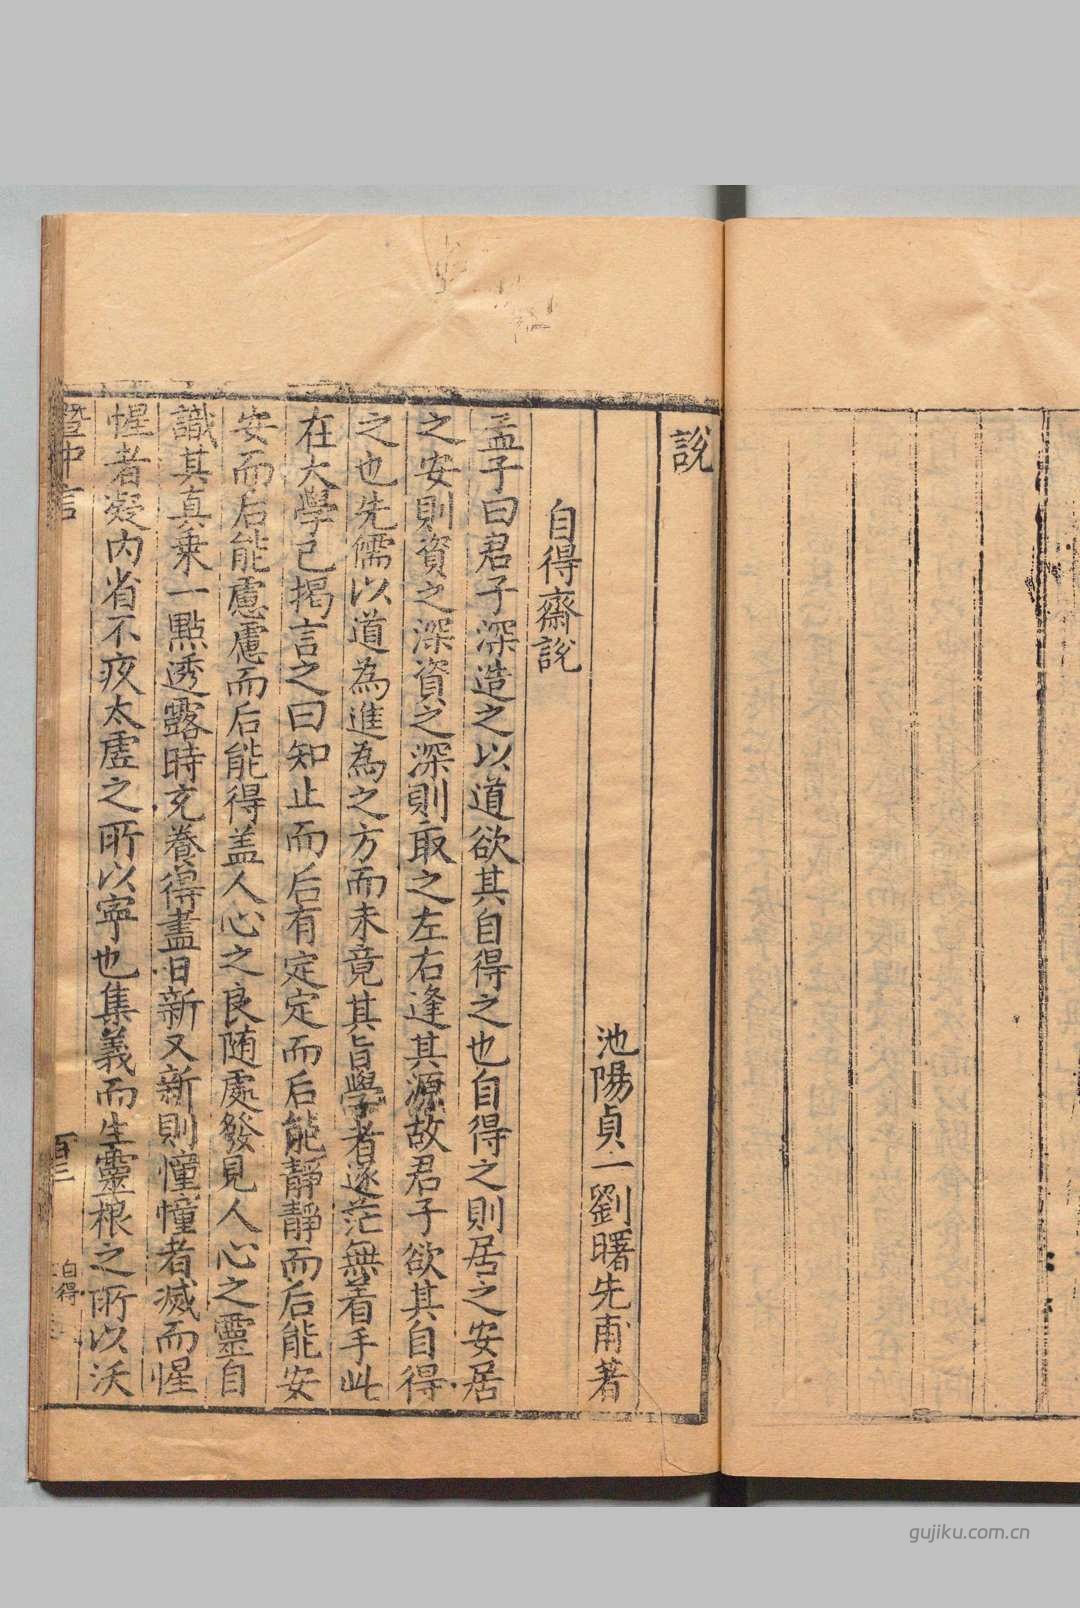 說
池陽貞一劉曙先甫著
自得齋說
孟子曰君子深造之以道欲其自得之也自得之則居之安居
之安則資之深資之深則取之左右逢其源故君子欲其自得
之也先儒以道為進為之方而未竟其旨學者逐茫無着手此
在大學已揭言之曰知止而后有定定而后能靜靜而后能安
安而后能慮慮而后能得盖人心之良随處發見人心之靈自
識其真乗一點透露時充養得盡日新又新則憧憧者滅而惺
惺者凝内省不疚太虛之所以寧也集義而生靈根之所以沃
中言
自得
gujiku.com.cn